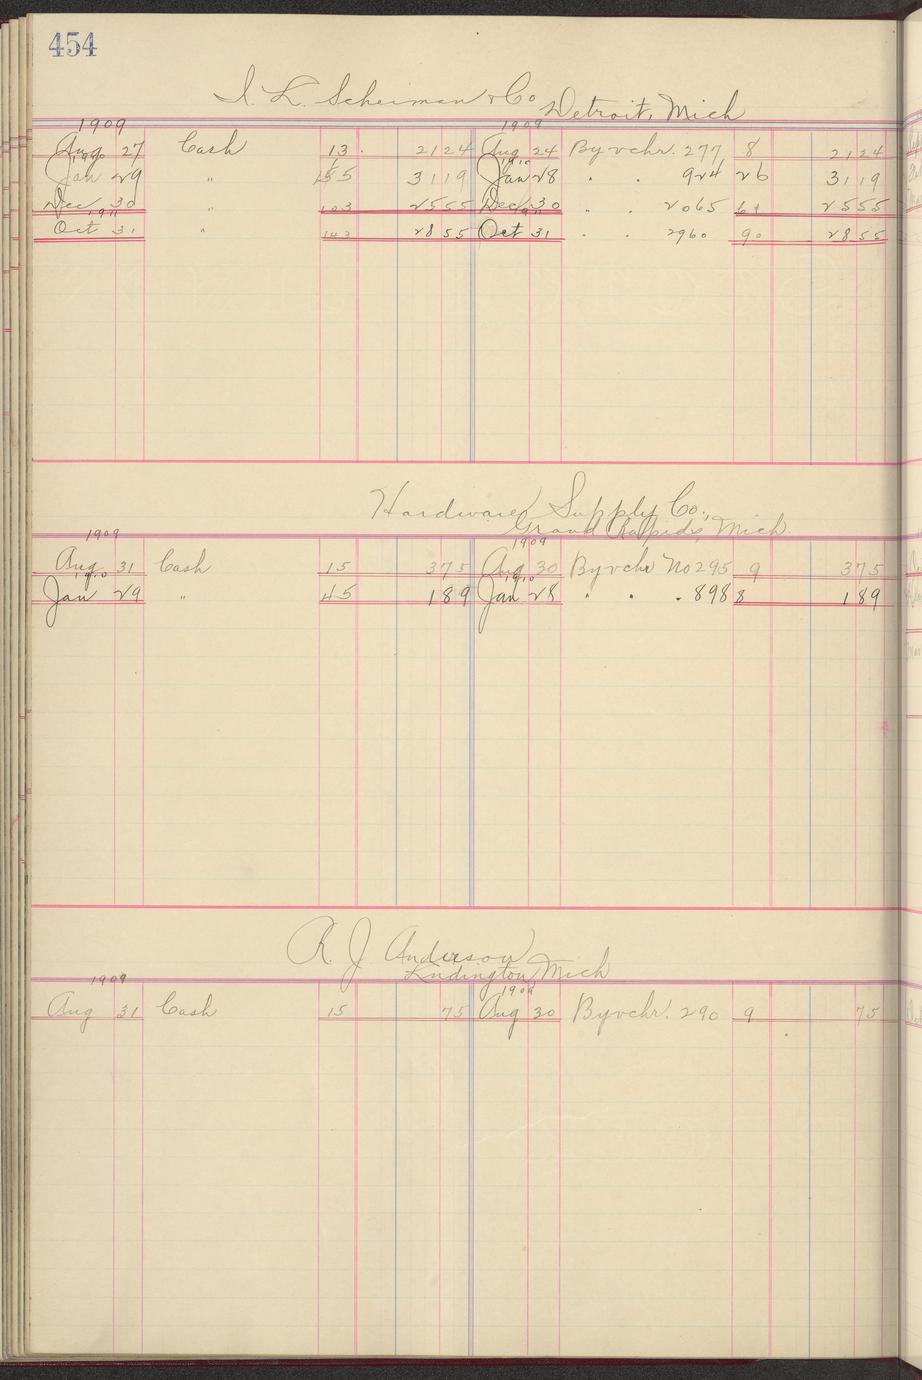 454
I. L. Scheiman & Co Detroit, Mich
1909 1909
Aug 27 Cash 13 2124 Aug 24 By vchr. 277 8 2124
1910 1910
Jan 29 " 45 3119 Jan 28 " " 924 26 3119
Dec 30 " 103 2555 Dec 30 " " 2065 61 2555
1911 1911
Oct 31 " 143 2855 Oct 31 " " 2960 90 2855
Hardware Supply Co.,
Grand Rapids, Mich
1909 1909
Aug 31 Cash 15 375 Aug 30 By vchr No 295 9 375
1910 1910
Jan 29 " 45 189 Jan 28 " " " 898 8 189
R. J. Anderson
Ludington, Mich
1909 1909
Aug 31 Cash 15 75 Aug 30 By vchr. 290 9 75